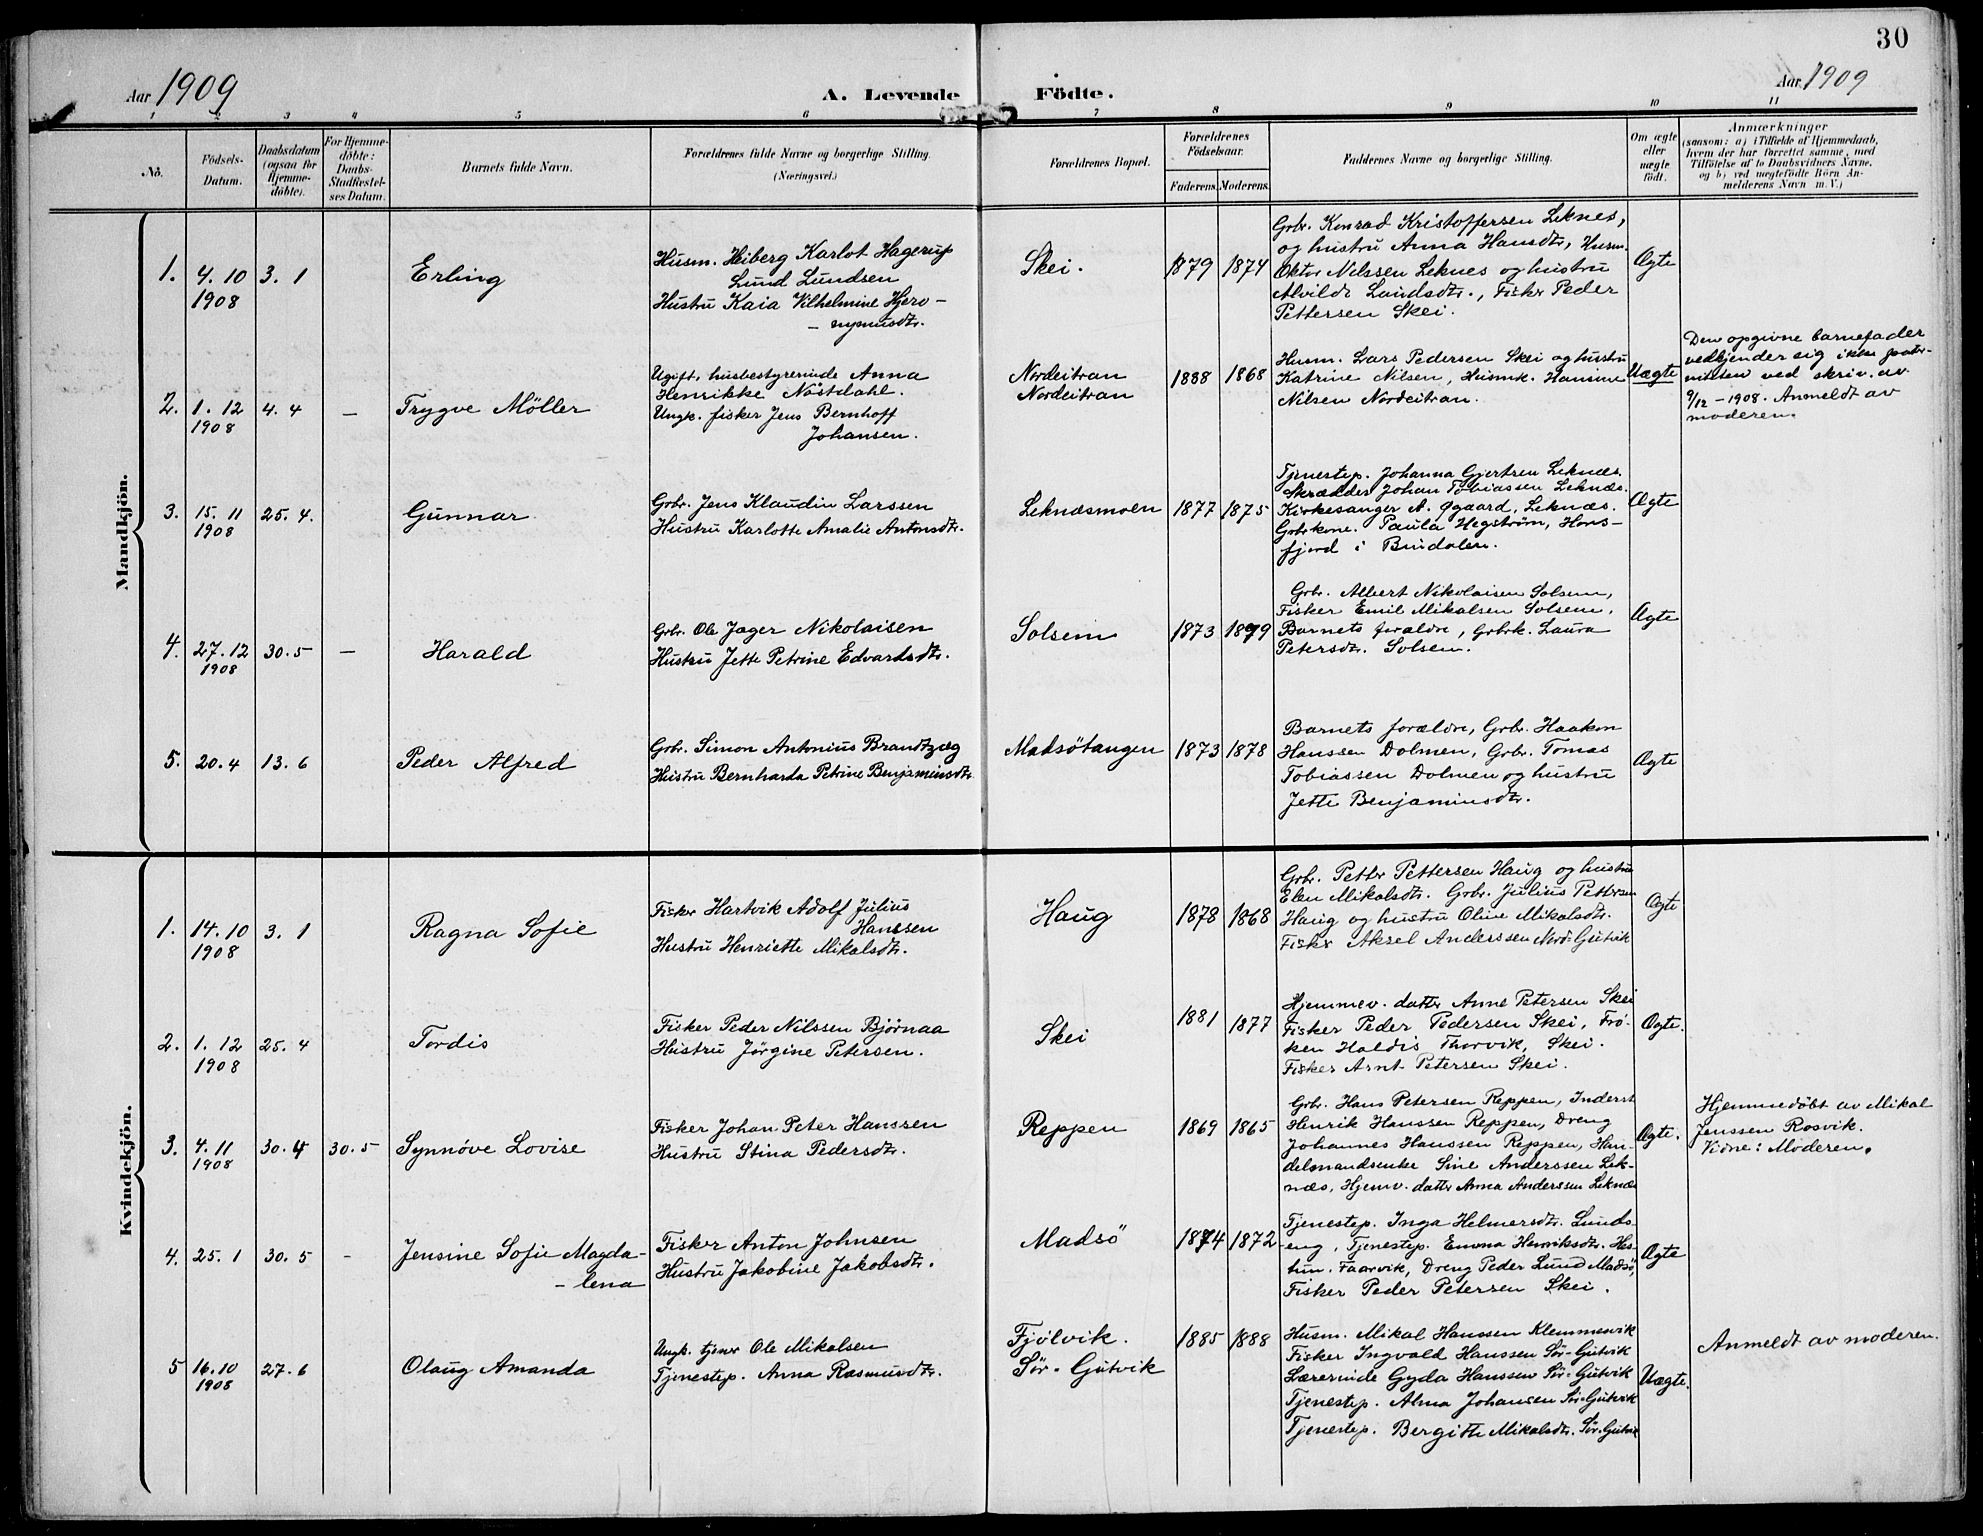 30
Aar 1909
A. Levende Födte.
Aar 1909
1 2 3 4 5 6 7 8 9 10 11
No.
Födsels-Datum.
Daabsdatum (ogsaa for Hjemmedöbte).
For Hjemmedöbte: Daabs-Stadfæstelses Datum.
Barnets fulde Navn.
Forældrenes fulde Navne og borgerlige Stilling.
(Næringsvei.)
Forældrenes Bopæl.
Forældrenes Födselsaar.
Faderens. Moderens.
Faddernes Navne og borgerlige Stilling.
Om ægte eller uægte födt.
Anmærkninger
(saasom: a) i Tilfælde af Hjemmedaab,
hvem der har forrettet samme, med
Tilföielse af to Daabsvidners Navne,
og b) ved uægtefödte Börn An-
melderens Navn m. V.)
Mandkjön.
1. 4. 10 3. 1
1908
Erling
Husm. Heiberg Karlot Hagerup
Lund Lundsen
Hustru Kaia Vilhelmine Hjero-
- nymusdtr.
Skei.
1879 1874
Grbr. Konrad Kristoffersen Leknes,
og hustru Anna Hansdtr, Husm.
Oktav Nilssen Leknes og hustru
Alvilde Lundsdtr., Fisker Peder
Pettersen Skei.
Ægte
2. 1. 12 4. 4 –
1908
Trygve Möller
Ugift, husbestyrerinde Anna
Henrikke Nöstdahl.
Ungk. fisker Jens Bernhoff
Johansen.
Nordeitran
Nordeitran
1888 1868
Husm. Lars Pedersen Skei og hustru
Katrine Nilsen, Husmk. Hansine
Nilsen Nordeitran.
Uægte
Den opgivne barnefader
vedkjender sig ikke pater-
niteten ved skriv. av
9/12 - 1908. Anmeldt av
moderen.
3. 15. 11 25. 4.
1908
Gunnar
Grbr. Jens Klaudin Larssen
Hustru Karlotte Amalie Antonsdtr.
Leknæsmoen
1877 1875
Tjenestep. Johanna Gjertsen Leknæs.
Skrædder Johan Tobiassen Leknæs.
Kirkesanger A. Øgaard, Leknæs.
Grbrkone. Paula Hegström, Hors-
fjord i Bindalen.
Ægte
4. 27. 12 30. 5 –
1908
Harald
Grbr. Ole Jager Nikolaisen
Hustru Jette Petrine Edvardsdtr.
Solsem
1873 1879
Grbr. Albert Nikolaisen Solsem,
Fisker Emil Mikalsen Solsem,
Barnets forældre, Grbrk. Laura
Petersdtr. Solsem.
Ægte
5. 20. 4 13. 6
Peder Alfred
Grbr. Simon Antonius Brandtzæg
Hustru Bernharda Petrine Benjaminsdtr.
Madsötangen
1873 1878
Barnets forældre, Grbr. Haakon
Hanssen Dolmen, Grbr. Tomas
Tobiassen Dolmen og hustru
Jette Benjaminsdtr.
Ægte
Kvindekjön.
1. 14. 10 3. 1
1908
Ragna Sofie
Fisker Hartvik Adolf Julius
Hanssen
Hustru Henriette Mikalsdtr.
Haug
1878 1868
Grbr. Petter Pettersen Haug og hustru
Elen Mikalsdtr. Grbr. Julius Pettersen
Haug og hustru Oline Mikalsdtr.
Fisker Aksel Anderssen Nord-Gutvik
Ægte
2. 1. 12 25. 4
1908
Tordis
Fisker Peder Nilssen Björnaa
Hustru Jörgine Petersen.
Skei
1881 1877
Hjemmev. datter Anne Petersen Skei
Fisker Peder Pedersen Skei, Frö-
ken Haldis Thorvik, Skei.
Fisker Arnt Petersen Skei.
Ægte.
3. 4. 11 30. 4 30. 5
1908
Synnöve Lovise
Fisker Johan Peter Hanssen
Hustru Stina Pedersdtr.
Reppen
1869 1865
Grbr. Hans Petersen Reppen, Inderst
Henrik Hanssen Reppen, Dreng
Johannes Hanssen Reppen, Han-
delsmandsenke Sine Anderssen Lek-
næs, Hjemv. datter Anna Anderssen Leknæs
Ægte.
Hjemmedöbt av Mikal
Jenssen Rosvik.
Vidne: Moderen.
4. 25. 1 30. 5 -
Jensine Sofie Magda-
- lena
Fisker Anton Johnsen
Hustru Jakobine Jakobsdtr.
Madsö
1874 1872
Tjenestep. Inga Helmersdtr. Lunds-
eng, Tjenestep. Emma Henriksdtr. Hes-
tun. Faarvik, Dreng Peder Lund Madsö,
Fisker Peder Petersen Skei.
Ægte
5 16. 10 27. 6
1908
Olaug Amanda
Ungk. tjener Ole Mikalsen
Tjenestep. Anna Rasmusdtr.
Fjölvik.
Sör-Gutvik
1885 1888
Husm. Mikal Hanssen Klemmesvik
Fisker Ingvald Hanssen Sör-Gutvik
Lærerinde Gyda Hanssen Sör-Gutvik
Tjenestep. Alma Johansen Sör-Gutvik
Tjenestep. Bergitte Mikalsdtr. Sör-Gutvik
Uægte.
Anmeldt av moderen.